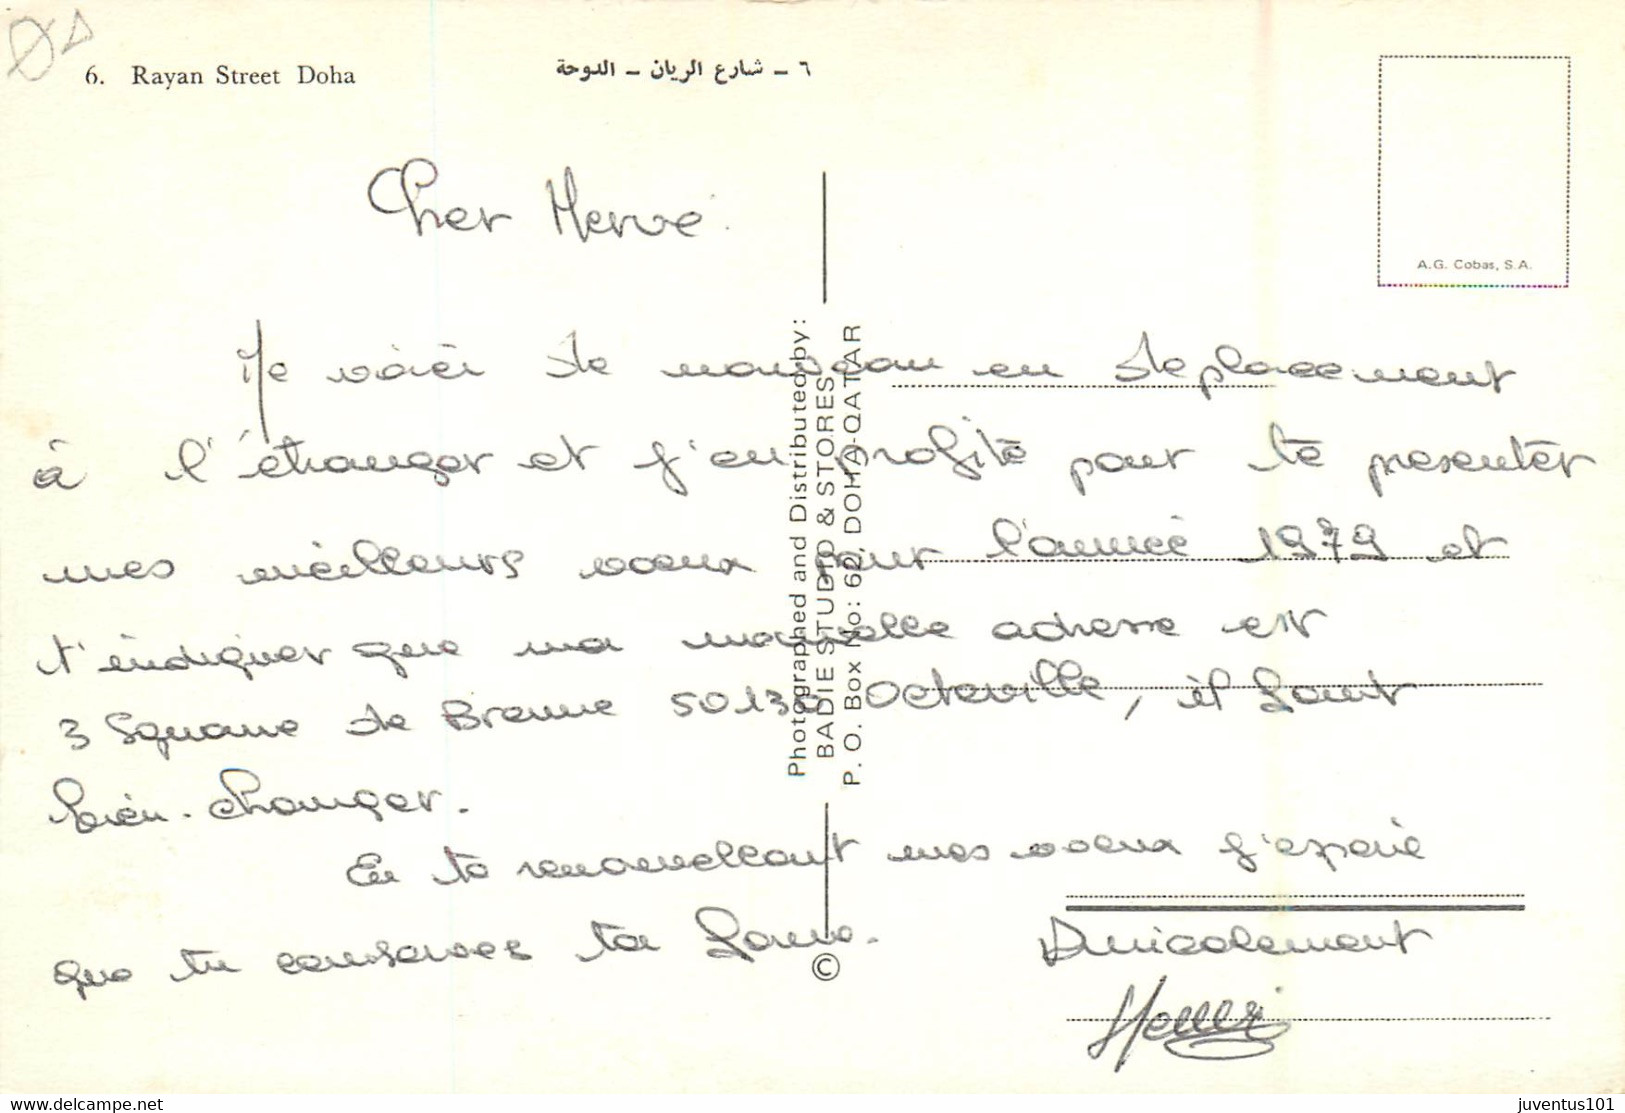 6. Rayan Street Doha
٦ - شارع الريان - الدوحة
A.G. Cobas, S.A.
Cher Hervé
Me voici de nouveau en deplacement
à l'étranger et j'en profite pour te presenter
mes meilleurs voeux pour l'année 1979 et
t'indiquer que ma nouvelle adresse est
3 Square de Brenne 50130 Octeville, il faut
bien changer.
En te renouvellant mes voeux j'espere
que tu conserves ta
Amicalement
Henri
Photographed and Distributed by:
BADIE STUDIO & STORES
P. O. Box No: 62 DOHA-QATAR
©
delcampe.net
juventus101